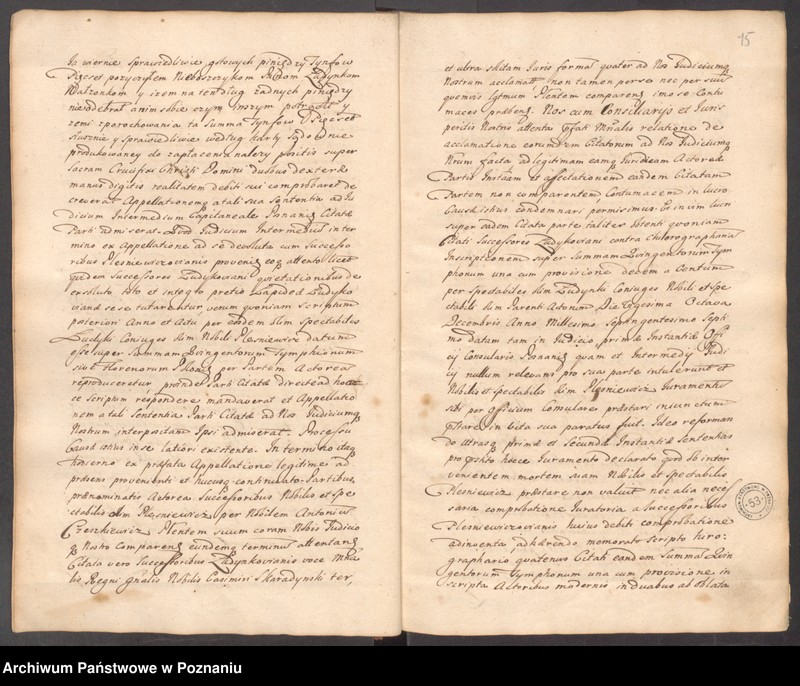 Ja wiernie sprawiedliwie gotowych pieniędzy Tynfow
Pięcset pozyczyłem Nieboszczykom Ichdom Ludynkom
Małzonkom y izem na ten dług żadnych pieniędzy
nieodebrał anim sbie czym Inszym potrącił y
zemi zporachowania ta summa Tynfow Pięcset
słusznie y sprawiedliwie według karty Sądownie
produkowaney do zapłacenia nalezy positis super
Sacram Crucifixi Christi Domini duobus dexterae
manus digitis realitatem debiti sui comprobaret de
creverat Appellationemq a tali sua Sententia ad Ju
dicium Intermedium Capitaneale Posnanie Citatae
Parti admiserat. Judicium Intermedium in ter
mino ex Appellatione ad se devoluta cum Successo
ribus Plesniewiczovianis proveniens eo attento licet
quidem Successores Ludynkoviani quietationibus de
exsoluto toto et integro pretio Lapideae Ludynko
vianae sese tutarentur, verum quoniam Scriptum
posteriori Anno et Actu per eosdem olim Spectabiles
Ludynki Coniuges olim Nobili Plesniewicz datum
esse super Summam Quingentorum Tymphonum
sive Florenorum per Partem Actoream
reproduceretur proinde Parti Citatae directe ad hocce
ce Scriptum respondere mandaverat et Appellatio
nem a tali Sententia Parti Citatae ad Nos Judiciumq
Nostrum interpositam Ipsi admiserat. Processu
Causae istius in se latiori existente. In termino itaq
hodierno ex praefata Appellatione legitime ad
praesens provenienti et hucusq continuato Partibus
praenominatis Actorea Successoribus Nobilis et Spe
ctabilis olim Plesniewicz per Nobilem Antonium
Czeszkiewicz Plentem suum coram Nobis Judicio
Nostro Comparens eundemq terminum attentans
Citata vero Successoribus Ludynkovianis voce Mnia
lis Regni gnalis Nobilis Casimiri Skaradynski ter,
15
et ultra solitam Juris formam quater ad Nos Judiciumq
Nostrum acclamatis non tamen per se nec per suum
quemvis legitimum Plentem comparens imo se Contu
maces praebens. Nos cum Consiliarijs et Juris
peritis Nostris attenta pfati Mnialis relatione de
acclamatione eorundem Citatorum ad Nos Judiciumq
Nrum facta ad legitimam eamq Juridicam Actoreae
Partis Instantiam et affectationem eandem Citatam
Partem non comparentem Contumacem in lucro
Causae istius condemnari permisimus. Et in vim lucri
super eadem Citata parte taliter obtenti quoniam
Citati Successores Ludykoviani contra Chirographariam
Inscriptionem super Summam Quingentorum Tym
phonum una cum provisione decem a Centum
per Spectabiles olim Ludynki Coniuges Nobili et Spe
ctabili olim Parenti Actorum Die Trigesima Octava
Decembris Anno Millesimo Septingentesimo Septi
mo datam tam in Judicio primae Instantiae Offi
cij Consularis Posnaniensis quam et Intermedij Judi
cij nullum relevamen pro sua parte intulerunt et
Nobilis et Spectabilis olim Plesniewicz Juramentum
sibi per Officium Consulare praestari iniunctum
pstare in vita sua paratus fuit. Ideo reforman
do utrasq primae et Secundae Instantiae Sententias
pro pstito hocce Juramento declarato quod ob inter
venientem mortem suam Nobilis et Spectabilis
Plesniewicz praestare non valuit nec alia neces
saria comprobatione Juratoria a Successoribus
Plesniewiczovianis huius debiti comprobatione
adinventa, adhaerendo memorato scripto Chiro:
graphario quatenus Citati eandem Summam Quin
gentorum Tymphonum una cum provisione in
scripta Actoribus modernis in duabus ab oblata
53
Archiwum Państwowe w Poznaniu